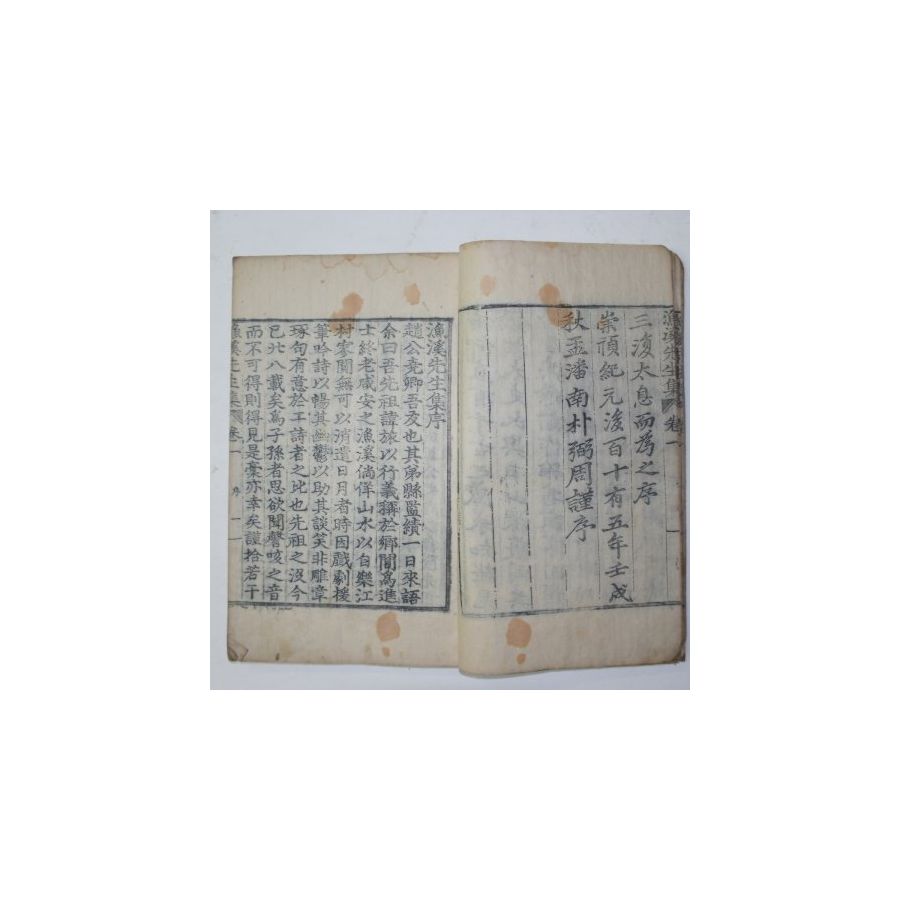 漁溪先生集 卷一
三復太息而爲之序
崇禎紀元後百十有五年壬戌
秋孟潘南朴弼周謹序
漁溪先生集序
趙公堯卿吾友也其弟縣監績一日來語
余曰吾先祖諱旅以行義稱於鄉閭爲進
士終老咸安之漁溪倘佯山水以自樂江
村寥闃無可以消遣日月者時因戲劇援
筆吟詩以暢其幽鬱以助其談笑非雕章
琢句有意於工詩者之比也先祖之沒今
已六八載矣爲子孫者思欲聞謦咳之音
而不可得則得見是藁亦幸矣謹拾若干
漁溪先生集 卷一 序 一